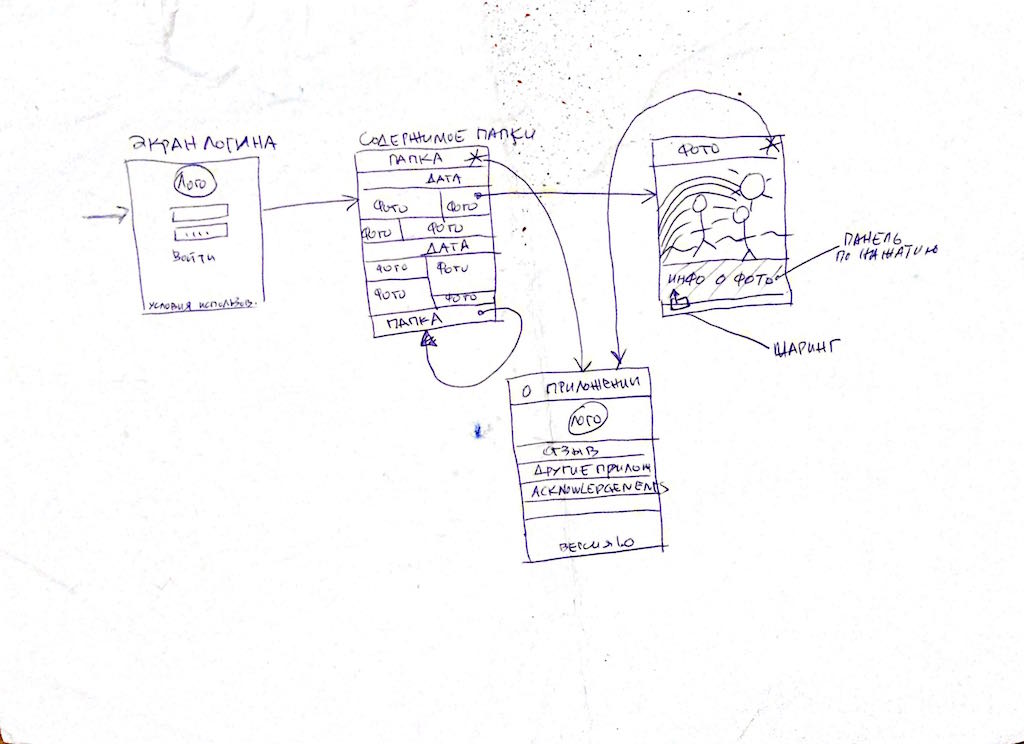 ЭКРАН ЛОГИНА
ЛОГО
....
ВОЙТИ
УСЛОВИЯ ИСПОЛЬЗОВ.
СОДЕРЖИМОЕ ПАПКИ
ПАПКА
ДАТА
ФОТО ФОТО
ФОТО ФОТО
ДАТА
ФОТО ФОТО
ФОТО ФОТО
ПАПКА
ФОТО
ИНФО О ФОТО
ПАНЕЛЬ
ПО НАЖАТИЮ
ШАРИНГ
О ПРИЛОЖЕНИИ
ЛОГО
ОТЗЫВ
ДРУГИЕ ПРИЛОЖ
ACKNOWLEDGEMENTS
ВЕРСИЯ 1.0